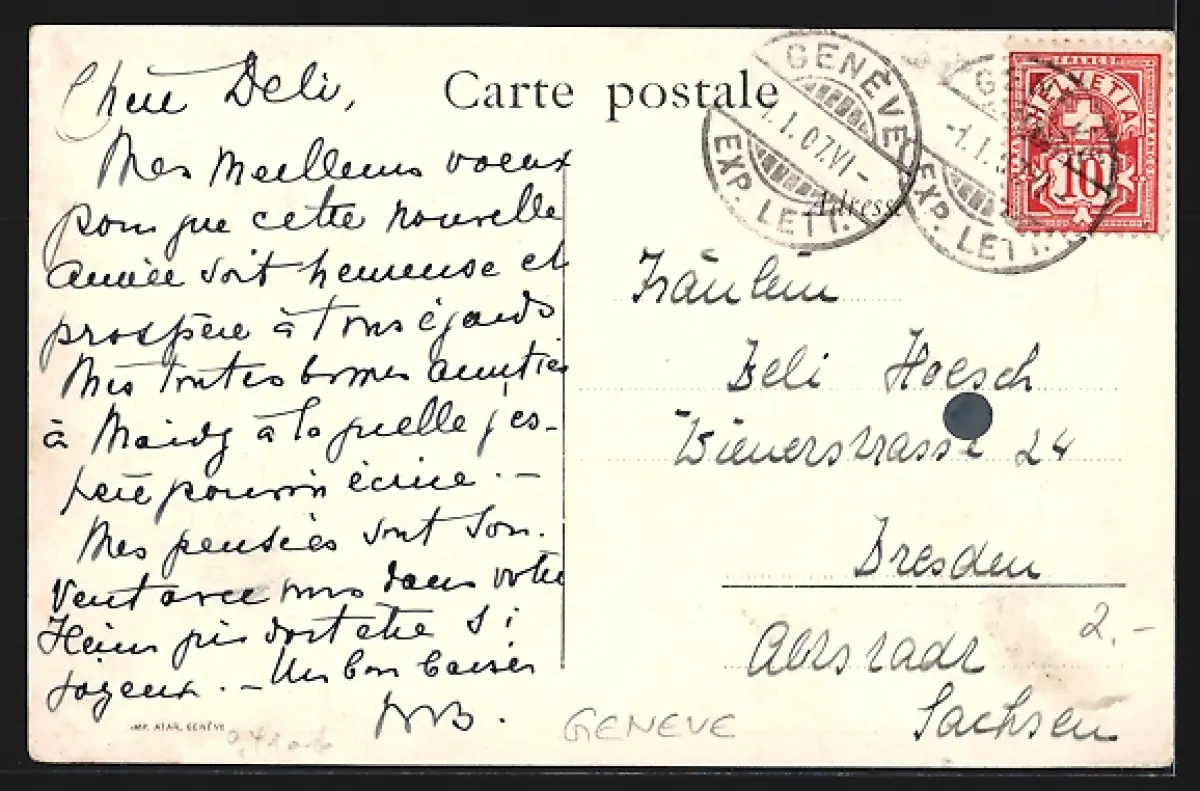 Chère Deli,
Mes Meilleurs voeux
pour que cette nouvelle
année soit heureuse et
prospère à tous égards
Mes toutes bonnes amitiés
à Maidy à laquelle j'es-
père pouvoir écrire. -
Mes pensées sont sou-
vent avec vous dans votre
Heim qui doit être si
joyeux. - Un bon baiser
IMP. ATAR, GENÈVE
Carte postale
GENÈVE
-1.I.07.VI-
EXP. LETT.
GENÈVE
-1.I.07.VI-
EXP. LETT.
FRANCO
HELVETIA
10
Adresse
Fräulein
Deli Hoesch
Wienerstrasse 24
Dresden
Altstadt
Sachsen
2.-
GENEVE